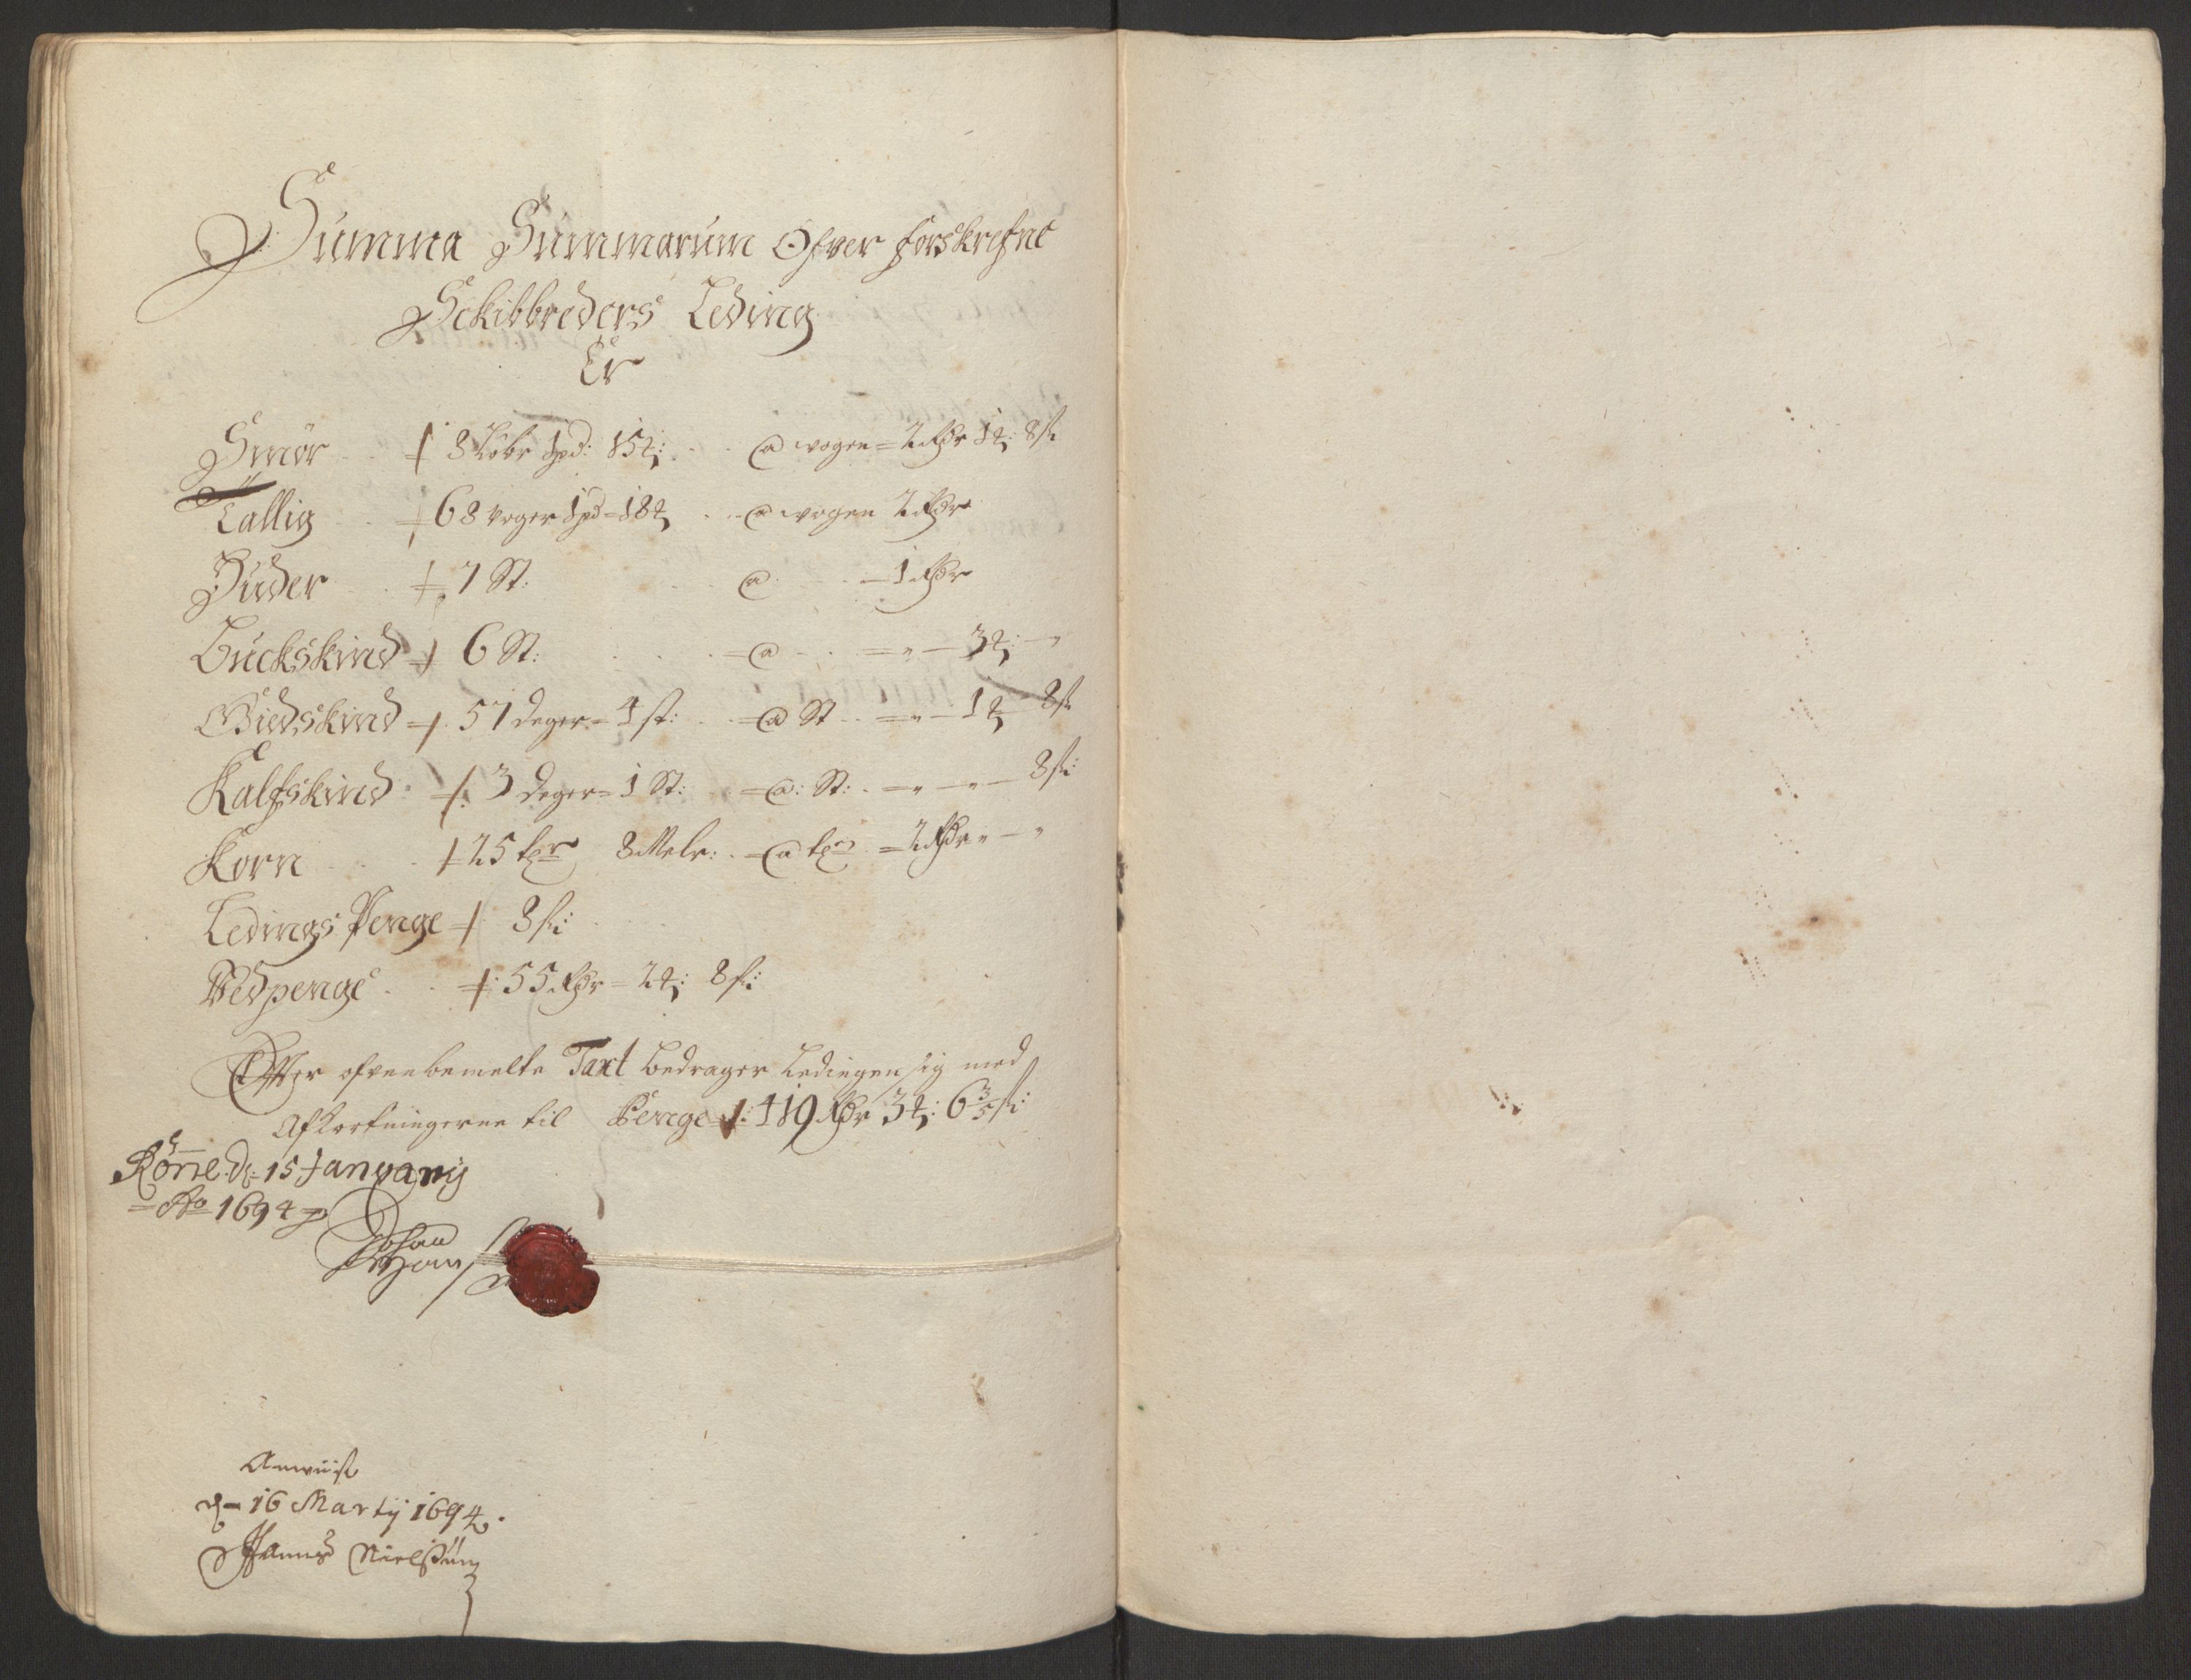 Summa Summarum Ofver forskrefne
Schibbreders Leding
Er
Smör 8 Löbr 1pd: 15 ℔: @ wogen = 2 Rdr 1 ℔: 8 s:
Tallig 68 voger 1pd = 18 ℔ @ wogen 2 Rdr
Huder 7 St: @ 1 Rdr
Buckskind 6 St: @ 3 ℔:
Giedskind 57 deger = 4 st: @ St 1 ℔ 8 s
Kalfskind 3 deger = 1 St: @: St: 8 s:
Korn 25 tr 8 Melr: @ tr = 2 Rdr
Ledings Penge 8 s:
Vedpenge 55 Rdr = 2 ℔: 8 s:
Efter ofvenbemelte Taxt bedrager Ledingen sig med
Afkortningerne til Penge: 419 Rdr 3 ℔: 6 3/5 s:
d: 15 January
Ao 1694
Johan
Anviist
d 16 Martij 1694.
Nielsßün